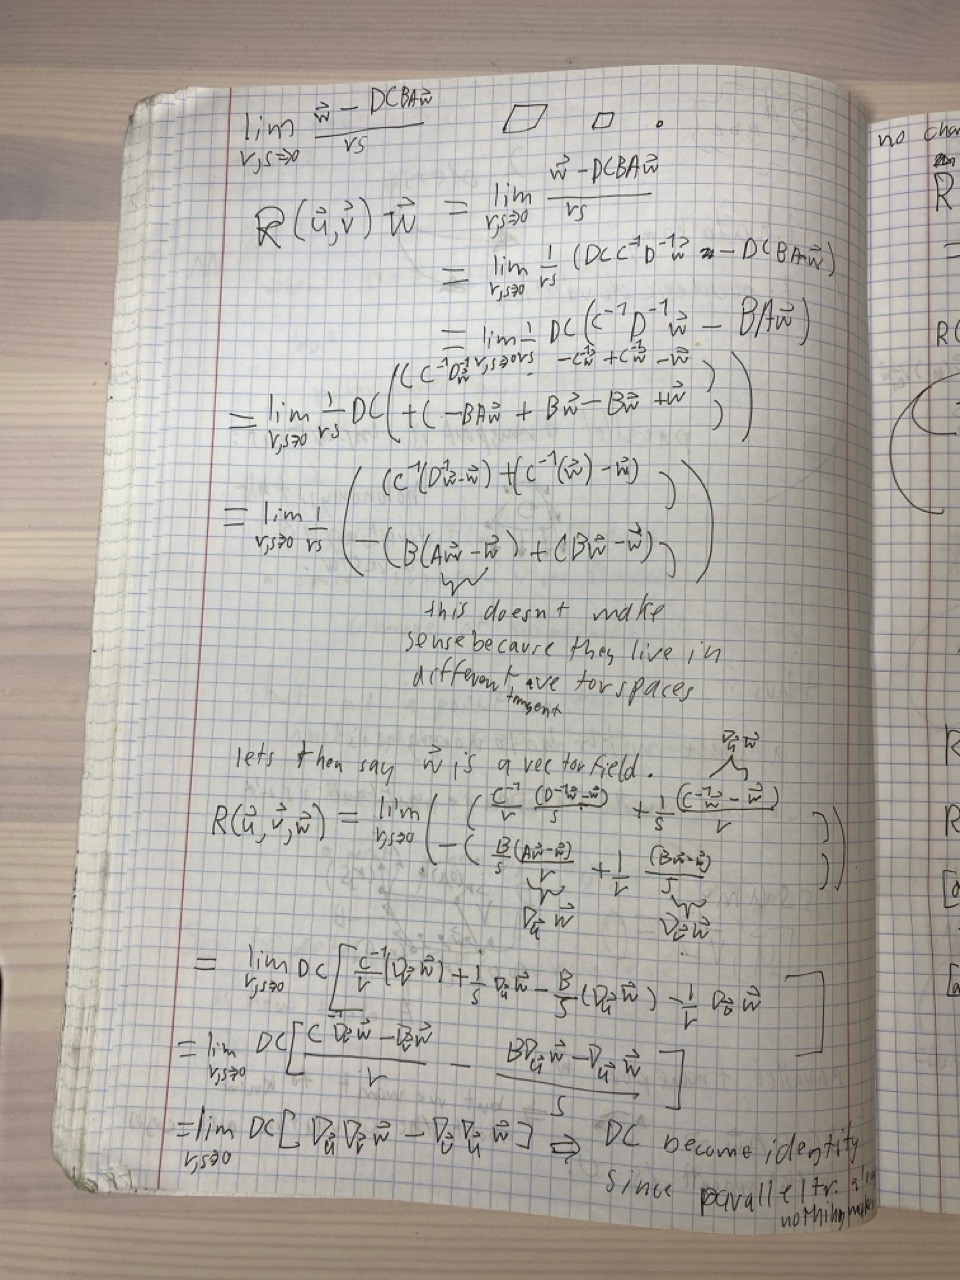 lim_{r,s→0} (w⃗ − DCBAw⃗)/rs
R(u⃗,v⃗)w⃗ = lim_{r,s→0} (w⃗ − DCBAw⃗)/rs
= lim_{r,s→0} 1/rs (DCC⁻¹D⁻¹w⃗ − DCBAw⃗)
= lim_{r,s→0} 1/rs DC(C⁻¹D⁻¹w⃗ − BAw⃗)
= lim_{r,s→0} 1/rs DC((C⁻¹D⁻¹w⃗ − C⁻¹w⃗ + C⁻¹w⃗ − w⃗)
+(−BAw⃗ + Bw⃗ − Bw⃗ + w⃗))
= lim_{r,s→0} 1/rs ((C⁻¹(D⁻¹w⃗−w⃗) + (C⁻¹(w⃗) − w⃗))
−(B(Aw⃗ − w⃗) + (Bw⃗ − w⃗)))
this doesn't make
sense because they live in
different vector spaces
tangent
lets then say w⃗ is a vector field.
∇_u⃗ w⃗
R(u⃗,v⃗,w⃗) = lim_{r,s→0} ((C⁻¹/r (D⁻¹w⃗−w⃗)/s + 1/s (C⁻¹w⃗ − w⃗)/r)
−(B/s (Aw⃗−w⃗)/r + 1/r (Bw⃗−w⃗)/s))
∇_u⃗ w⃗ ∇_v⃗ w⃗
= lim_{r,s→0} DC[C⁻¹/r (∇_v⃗ w⃗) + 1/s ∇_u⃗ w⃗ − B/s (∇_u⃗ w⃗) − 1/r ∇_v⃗ w⃗]
= lim_{r,s→0} DC[(C⁻¹∇_v⃗ w⃗ − ∇_v⃗ w⃗)/r − (B∇_u⃗ w⃗ − ∇_u⃗ w⃗)/s]
= lim_{r,s→0} DC[∇_u⃗ ∇_v⃗ w⃗ − ∇_v⃗ ∇_u⃗ w⃗] ⇒ DC become identity
since parallel tr.
nothing
no
R
=
R(
R
R